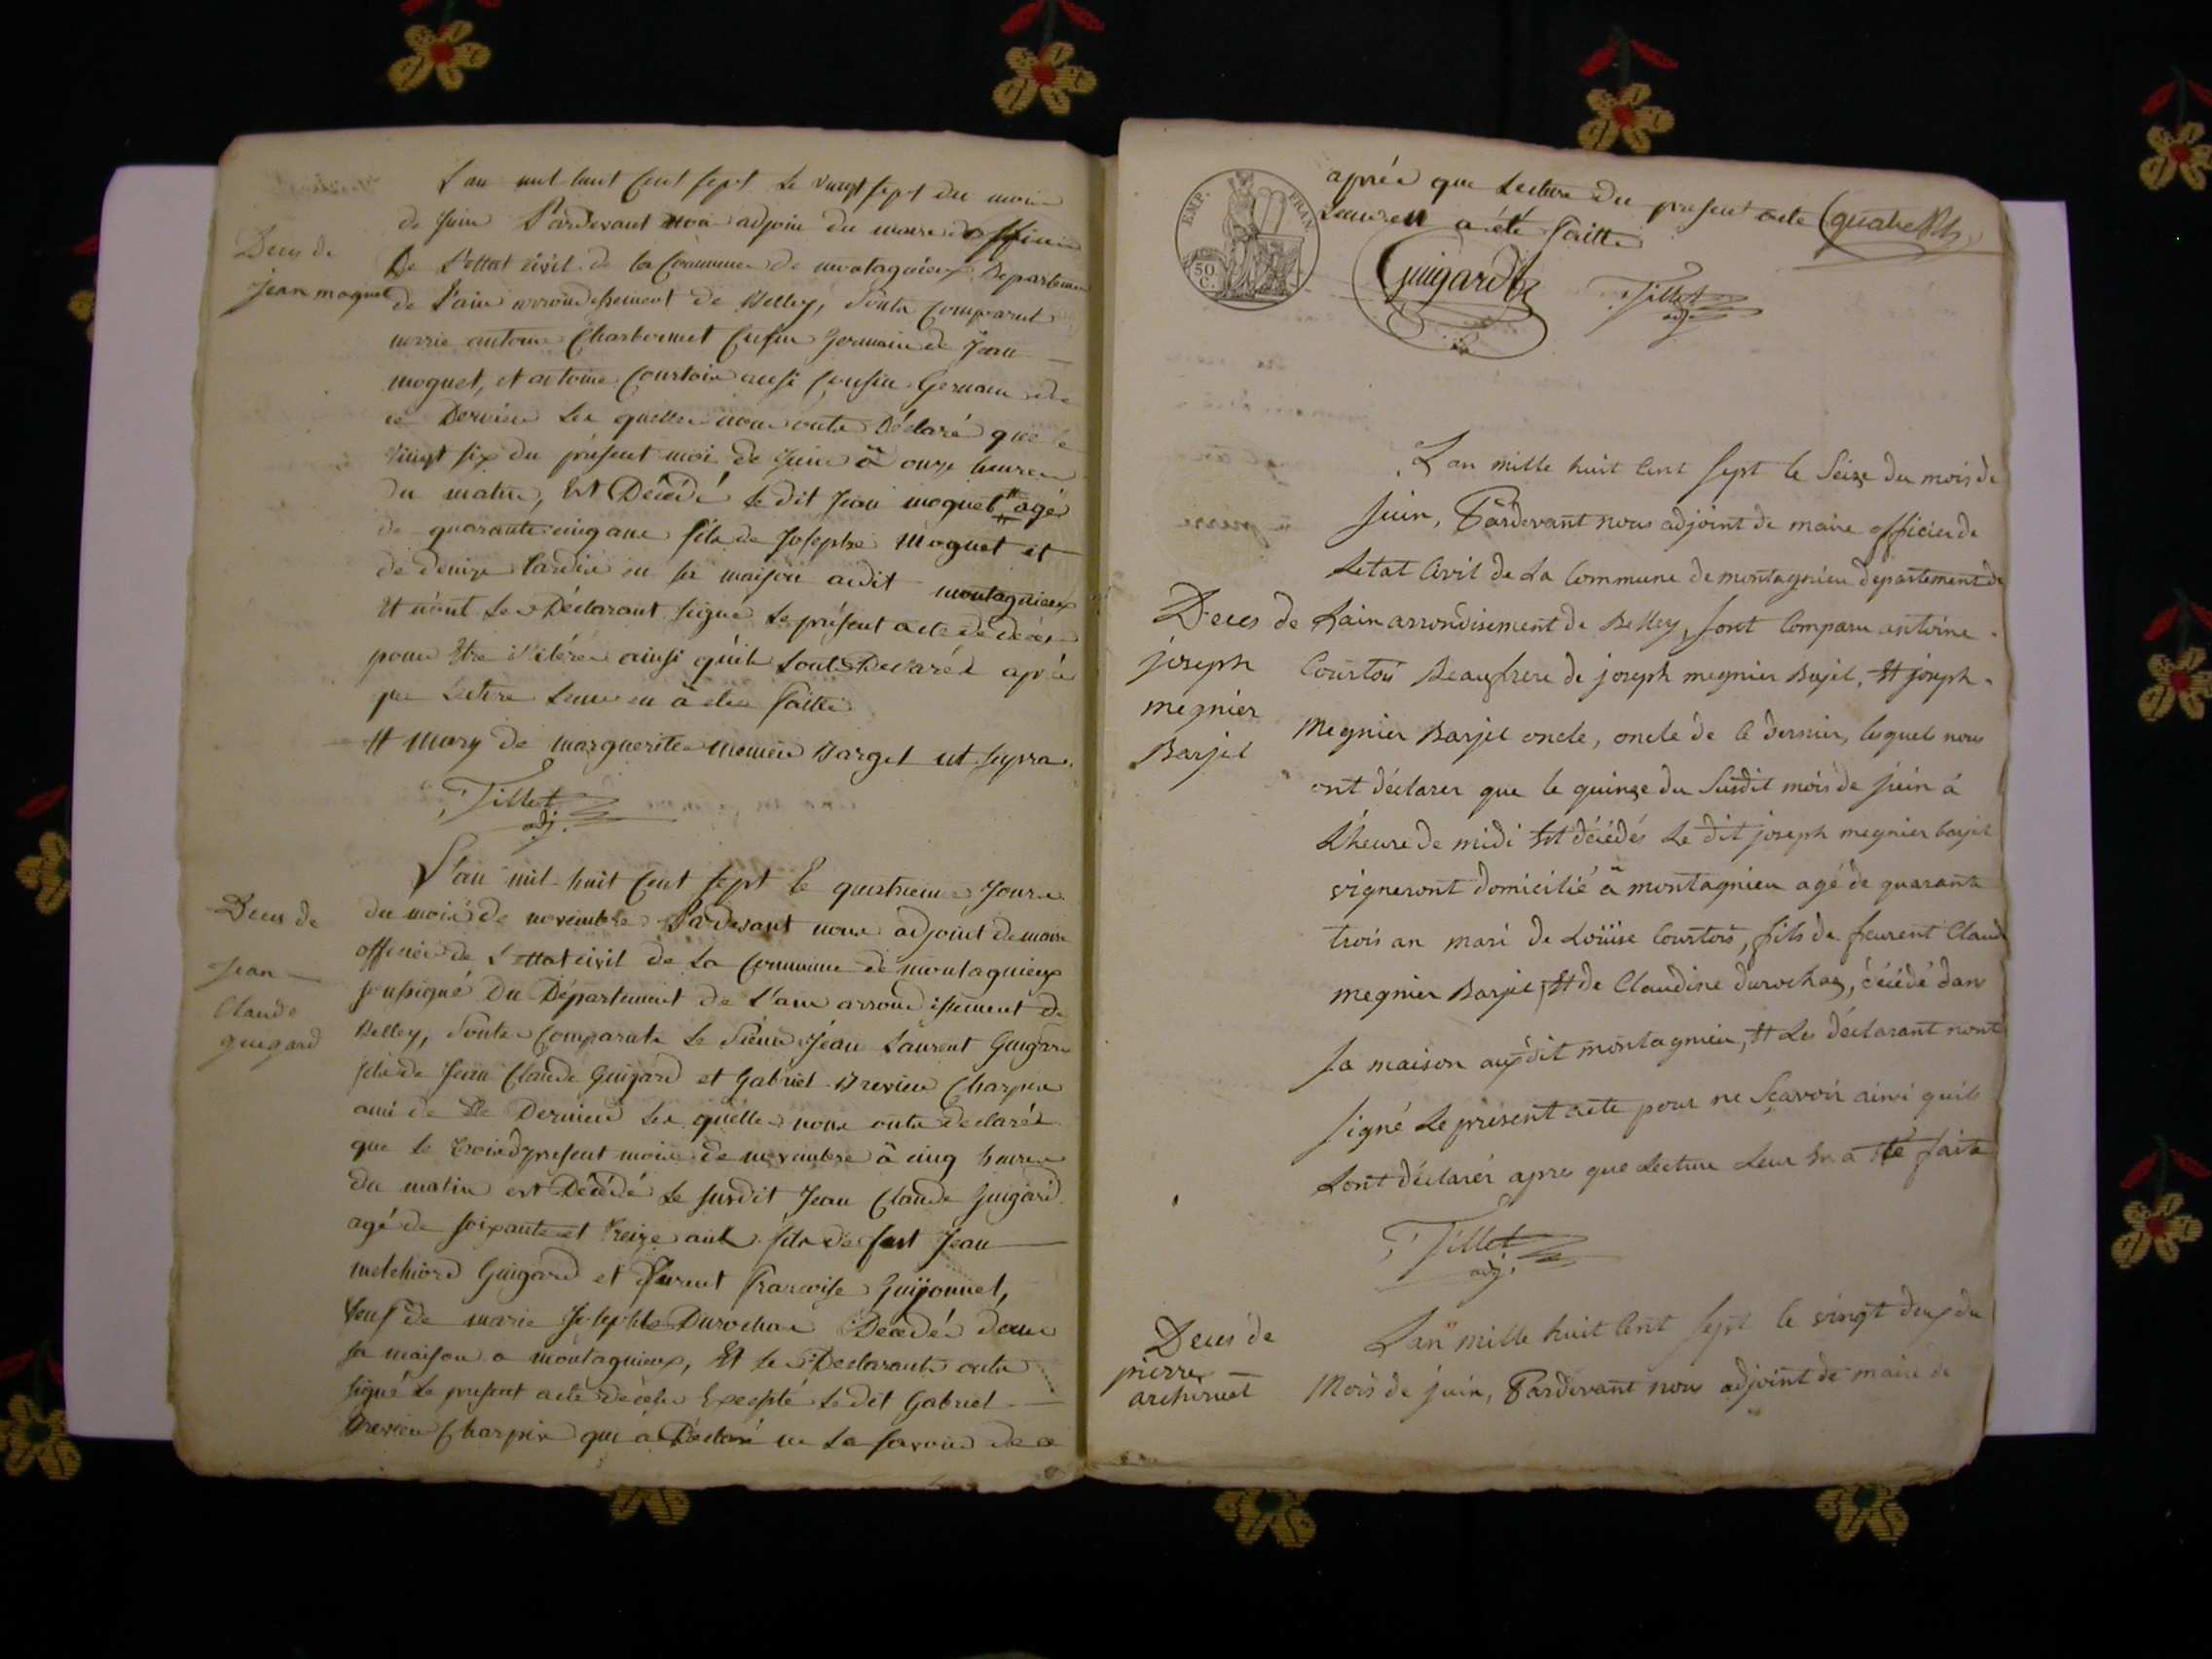 L'an mil huit Cent sept le vingt sept du moi
de juin Pardevant noü adjoin du maire officier
De L'ettat civil de la Commune de montagnieux Departemen
de l'ain arrondissement de Belley, sonta Comparut
antoine Charbonnet Cusin Germain de Jean
moguet, et antoine Courtois ausi Cousin Germain de
ce Dernier les quelles nous onta Déclaré que le
vingt six du présent moi de Juin à onze heures
du matin, Est Décédé le dit Jean moguet agé
de quarante cinq ans fils de Josephe Moguet et
de denize en sa maison audit montagnieux
Et n'ont les Déclarant signé le présent acte de decés
pour Etre ainsi quils Declarés aprés
que Lecture Leur en à eté faitte
Et mary de marguerite Barget ut supra.
Tillet
adj.
Deces de
jean moguet
L'an mil huit Cent sept le quatrieme Jour
du mois de novembre Pardevant nous adjoint de maire
officier de L'ettat civil de La Commune de montagnieux
soussigné Du Département de L'ain arrondissement de
Belley, sonta Comparuta Le Sieur Jean Laurent Guigard
fils de Jean Claude Guigard et Gabriel Trevieu Charpin
ami de Ce Dernier les quelles nous onta declarés
que le trois du present mois de novembre à cinq heures
du matin est Décédé le susdit Jean Claude Guigard
agé de soixante et treize ans fils de fut Jean
melchiord Guigard et Françoise Guijonnet,
veuf de marie Josephte Durochat Decedé dans
sa maison a montagnieux, Et les Declarants onta
signé le present acte Excepté le dit Gabriel
Trevieu Charpin qui à Déclaré ne le savoir de ce
Deces de
Jean
Claude
guigard
EMP. FRAN.
50 C.
aprés que Lecture du present acte
Leur en a été faitte
Guigard
Tillet
adj.
L'an mille huit Cent sept le Seize du mois de
juin, Pardevant nous adjoint de maire officier de
Letat Civil de La Commune de montagnieu departement de
Lain arrondisement de Belley, sont Comparu antoine
Courtois Beaufrere de joseph megnier Barjil, Et joseph
Megnier Barjil oncle, oncle de ce dernier, lesquels nous
ont déclarer que le quinze du susdit mois de juin à
L'heure de midi Est décédés Le dit joseph megnier barjil
vigneront domicilié à montagnieu agé de quarante
trois an mari de Loüise Courtois, fils de feurent Claude
megnier Barjil, Et de Claudine durochaz, décédé dans
sa maison auxdit montagnieu, Et Les déclarant nont
signé Le present acte pour ne Sçavoir ainsi quils
Lont déclarér apres que Lecture Leur En a Eté faite
Tillet
adj.
Deces de
joseph
megnier
Barjil
Lan mille huit Cent sept le vingt deux du
Mois de juin, Pardevant nous adjoint de maire de
Deces de
pierre